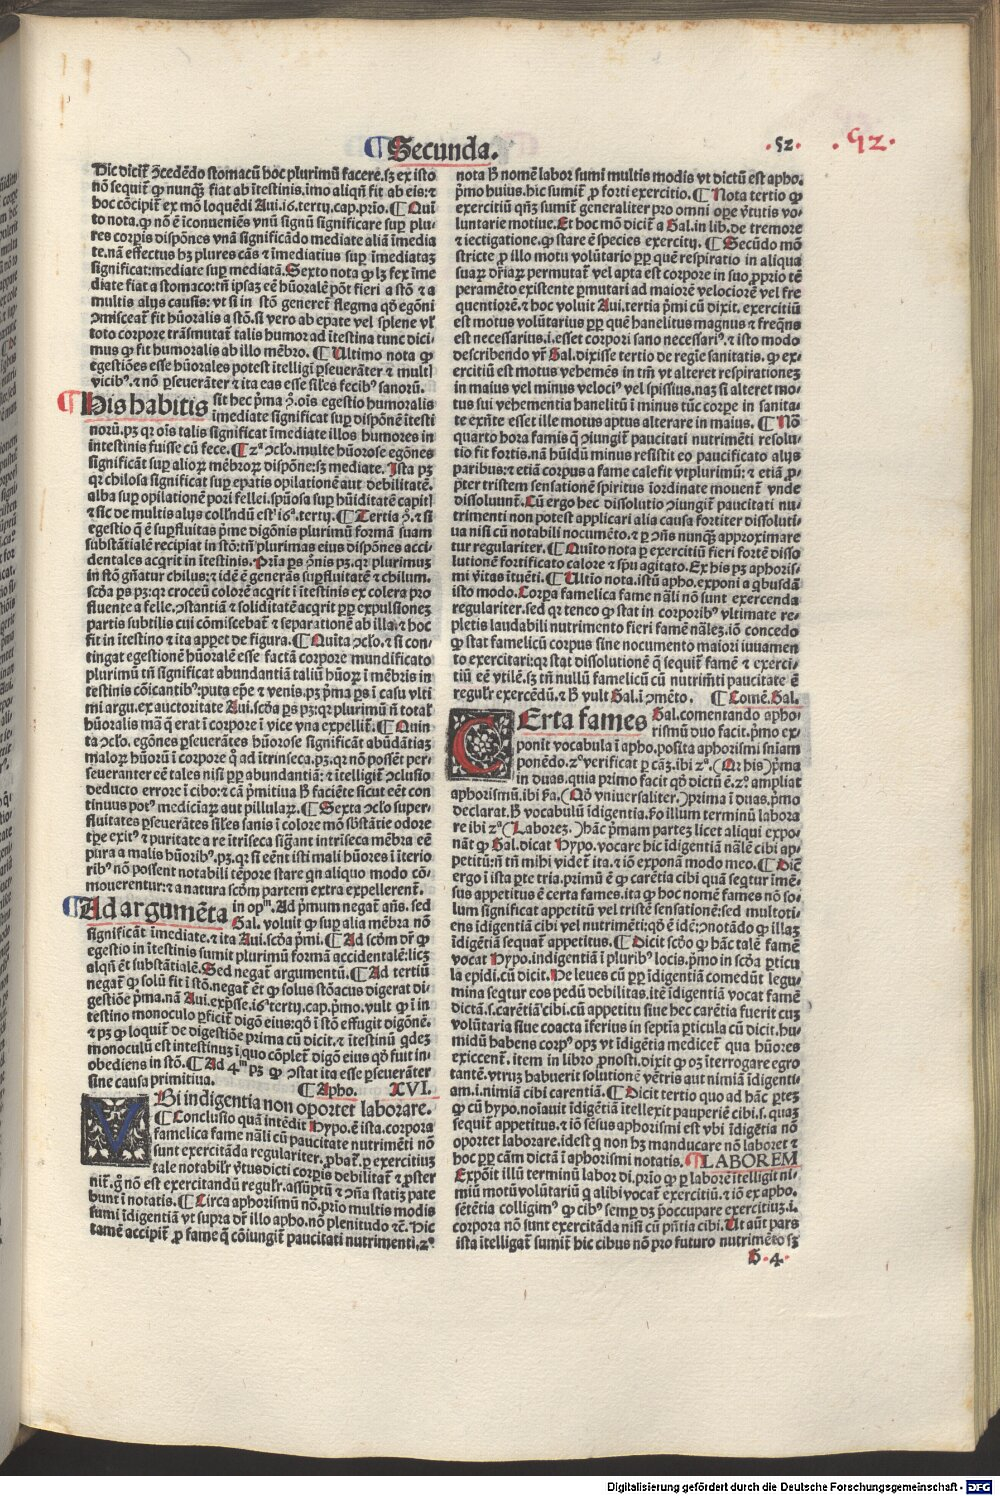 ¶Secunda.
.52. .92.
Dic dicit̃ ꝯcedẽdo stomacũ hoc plurimũ facere. sꝫ ex isto
nõ sequit̃ ꝙ nunqᷓꝫ fiat ab ĩtestinis. imo aliqñ fit ab eis: ⁊
hoc cõcipit̃ ex mõ loquẽdi Aui. i6. tertij. cap. prĩo. ¶ Quĩ
to nota. ꝙ nõ ẽ ĩcõueniẽs vnũ signũ significare suꝑ plu-
res corꝑis dispões vnã significãdo mediate aliã ĩmedia
te. nã effectus hꝫ plures cãs ⁊ ĩmediatius suꝑ ĩmediataꝫ
significat: mediate suꝑ mediatã. Sexto nota ꝙ lꝫ fex ĩme
diate fiat a stomaco: tñ ipsaꝫ eẽ hũoralẽ põt fieri a stõ ⁊ a
multis alijs causis: vt si in stõ generet̃ flegma qõ egõni
ꝯmisceat̃ fit hũoralis a stõ. si vero ab epate vel splene vł
toto corpore trãsmutat̃ talis humor ad ĩtestina tunc dici-
mus ꝙ fit humoralis ab illo mẽbro. ¶ Ultimo nota ꝙ
egestiões esse hũorales potest ĩtelligi ꝑseuerãter ⁊ multĩ
vicibꝰ. ⁊ nõ ꝑseuerãter ⁊ ita eas esse siłes fecibꝰ sanorũ.
¶ His habitis sit hec p̃ma ꝯ. oĩs egestio humoralis
imediate significat suꝑ dispõnẽ ĩtesti
norũ. pꝫ qꝛ oĩs talis significat ĩmediate illos humores in
intestinis fuisse cũ fece. ¶ 2ᵃ ꝯclo. multe hũorose egões
significãt suꝑ alioꝝ mẽbroꝝ dispõne: sꝫ mediate. Ista pꝫ
qꝛ chilosa significat suꝑ epatis opilationẽ aut debilitatẽ.
alba suꝑ opilationẽ pori fellei. spũosa suꝑ hũiditatẽ capit
⁊ sic de multis alijs collñdũ est i6ᵃ. tertij. ¶ Tertia ꝯ. ⁊ si
egestio q̃ ẽ suꝑfluitas p̃me digõnis plurimũ formã suam
substãtialẽ recipiat in stõ: tñ plurimas eius dispões acci-
dentales acq̃rit in ĩtestinis. Pria ps ꝯnis pꝫ. qꝛ plurimuꝫ
in stõ gñatur chilus: ⁊ idẽ ẽ generãs suꝑfluitatẽ ⁊ chilum.
scõa ps pꝫ: qꝛ croceũ colorẽ acq̃rit ĩ ĩtestinis ex colera pro
fluente a felle. ꝯstantiã ⁊ soliditatẽ acq̃rit ꝑꝑ expulsionez
partis subtilis cui cõmiscebat̃ ⁊ separationẽ ab illa. ⁊ hoc
fit in ĩtestino ⁊ ita appet de figura. ¶ Quĩta ꝯclo. ⁊ si con-
tingat egestionẽ hũoralẽ esse factã corpore mundificato
plurimũ tñ significat abundantiã taliũ hũoꝝ ĩ mẽbris in
testinis cõicantibꝰ: puta epẽ ⁊ venis. pꝫ p̃ma ps ĩ casu vlti
mi argu. ex auctoritate Aui. scõa ps pꝫ: qꝛ plurimũ ñ total
hũoralis mã q̃ erat ĩ corpore ĩ vice vna expellit̃. ¶ Quin
ta ꝯclo. egões ꝑseuerãtes hũorose significãt abũdãtiaꝫ
maloꝝ hũorũ ĩ corpore q̃ ad ĩtrinseca. pꝫ. qꝛ nõ possẽt per-
seueranter eẽ tales nisi ꝑꝑ abundantiã: ⁊ ĩtelligit̃ ꝯclusio
deducto errore ĩ cibo: ⁊ cã p̃mitiua ħ faciẽte sicut eẽt con
tinuus potꝰ medicinaꝝ aut pillulaꝝ. ¶ Sexta ꝯclo super-
fluitates ꝑseuerãtes siles sanis ĩ colore mõ sbstãtie odore
tꝑe exitꝰ ⁊ puritate a re ĩtriseca sigñant intriseca mẽbra eẽ
pura a malis hũoribꝰ. pꝫ. qꝛ si eẽnt isti mali hũores ĩ iterio
ribꝰ nõ possent notabili tẽpore stare qn aliquo modo cõ-
mouerentur: ⁊ a natura scõm partem extra expellerent̃.
¶ Ad argumẽta in opᵐ. Ad p̃mum negat̃ añs. sed
Gal. voluit ꝙ suꝑ alia mẽbra nõ
significãt ĩmediate. ⁊ ita Aui. scõa p̃mi. ¶ Ad scõm dr̃ ꝙ
egestio in ĩtestinis sumit plurimũ formã accidentalẽ: licꝫ
alqñ ẽt substãtialẽ. Sed negat̃ argumentũ. ¶ Ad tertiũ
negat̃ ꝙ solũ fit ĩ stõ. negat̃ ẽt ꝙ solus stõacus digerat di-
gestiõe p̃ma. nã Aui. exp̃sse. i6ᵃ tertij. cap. p̃mo. vult ꝙ ĩ in
testino monoculo ꝑficit̃ digõ eius: qõ ĩ stõ effugit digõnẽ.
⁊ pꝫ ꝙ loquit̃ de digestiõe prima cũ dicit. ⁊ ĩtestinũ q̃deꝫ
monoculũ est intestinuꝫ ĩ quo cõplet̃ digõ eius qõ fuit in-
obediens in stõ. ¶ Ad 4ᵐ pꝫ ꝙ ꝯstat ita esse ꝑseuerãter
sine causa primitiua. ¶ Apho. XVI.
VBi indigentia non oportet laborare.
¶ Conclusio quã intẽdit Hypo. ẽ ista. corpora
famelica fame nãli cũ paucitate nutrimẽti nõ
sunt exercitãda regulariter. ꝓbat̃. ꝑ exercitiuꝫ
tale notabilr̃ ṽtus dicti corꝑis debilitat̃ ⁊ ꝓster
nit̃. q̃ nõ est exercitandũ regulr̃. assũptũ ⁊ ꝯña statiꝫ pate
bunt ĩ notatis. ¶ Circa aphorismũ nõ. prĩo multis modis
sumi ĩdigentiã vt supra dr̃ illo apho. nõ plenitudo ⁊c̃. Hic
tamẽ accipit̃ ꝓ fame q̃ cõiungit̃ paucitati nutrimenti. 2ᵒ
nota ħ nomẽ labor sumi multis modis vt dictũ est apho.
p̃mo huius. hic sumit̃ ꝓ forti exercitio. ¶ Nota tertio ꝙ
exercitiũ qñꝫ sumit̃ generaliter pro omni oꝑe ṽtutis vo-
luntarie motiue. Et hoc mõ dicit̃ a Gal. in lib. de tremore
⁊ iectigatione. ꝙ stare ẽ species exercitij. ¶ Secũdo mõ
stricte ꝓ illo motu volũtario ꝑꝑ quẽ respiratio in aliqua
suaꝝ dr̃iaꝝ permutat̃ vel apta est corpore in suo ꝓprio tẽ
peramẽto existente ꝑmutari ad maiorẽ velociorẽ vel fre
quentiorẽ. ⁊ hoc voluit Aui. tertia p̃mi cũ dixit. exercitiũ
est motus volũtarius ꝑꝑ quẽ hanelitus magnus ⁊ freqñs
est necessarius. i. esset corpori sano necessariꝰ. ⁊ isto modo
describendo vr̃ Gal. dixisse tertio de regĩe sanitatis. ꝙ ex-
ercitiũ est motus vehemẽs in tm̃ vt alteret respirationeꝫ
in maius vel minus velociꝰ vel spissius. naꝫ si alteret mo-
tus sui vehementia hanelitũ ĩ minus tũc corpe in sanita-
te exñte esset ille motus aptus alterare in maius. ¶ Nõ
quarto hora famis q̃ ꝯiungit̃ paucitati nutrimẽti resolu-
tio fit fortis. nã hũidũ minus resistit eo paucificato alijs
paribus: ⁊ etiã corpus a fame calefit vtplurimũ: ⁊ etiã ꝓ-
pter tristem sensationẽ spiritus ĩordinate mouent̃ vnde
dissoluunt̃. Cũ ergo hec dissolutio ꝯiungit̃ paucitati nu-
trimenti non potest applicari alia causa fortiter dissoluti-
ua nisi cũ notabili nocumẽto. ⁊ ꝑ ꝯñs nunqᷓꝫ approximare
tur regulariter. ¶ Quĩto nota ꝑ exercitiũ fieri fortẽ disso
lutionẽ fortificato calore ⁊ spũ agitato. Ex his pꝫ aphoris-
mi ṽitas ĩtuẽti. ¶ Ultĩo nota. istũ apho. exponi a q̃busdã
isto modo. Corpa famelica fame nãli nõ sunt exercenda
regulariter. sed qꝛ teneo ꝙ stat in corporibꝰ vltimate re-
pletis laudabili nutrimento fieri famẽ nãleꝫ. iõ concedo
ꝙ stat famelicũ corpus sine nocumento maiori iuuamen
to exercitari: qꝛ stat dissolutionẽ q̃ sequit̃ famẽ ⁊ exerci-
tiũ eẽ vtilẽ. sꝫ tñ nullũ famelicũ cũ nutrim̃ti paucitate ẽ
regulr̃ exercẽdũ. ⁊ ħ vult Gal. ĩ ꝯmẽto. ¶ Comẽ. Gal.
CErta fames Gal. comentando apho-
rismũ duo facit. p̃mo ex-
ponit vocabula ĩ apho. posita aphorismi sniam
ponẽdo. 2ᵒ verificat ꝑ cãꝫ. ibi 2ᵃ. (Qꝛ his) p̃ma
in duas. quia primo facit qõ dictũ ẽ. 2ᵒ ampliat
aphorismũ. ibi ẞa. (Qõ vniuersaliter.) prima ĩ duas. p̃mo
declarat. ħ vocabulũ ĩdigentia. ẞo illum terminũ labora
re ibi 2ᵃ (Laboreꝫ.) hãc p̃mam parteꝫ licet aliqui expo-
nãt ꝙ Gal. dicat Hypo. vocare hic ĩdigentiã nãlẽ cibi ap-
petitũ: ñ tñ mihi videt̃ ita. ⁊ iõ exponã modo meo. ¶ Dicẽ
ergo ĩ ista ꝑte tria. primũ ẽ ꝙ carẽtia cibi quã seq̃tur ĩmẽ-
sus appetitus ẽ certa fames. ita ꝙ hoc nomẽ fames nõ so-
lum significat appetitũ vel tristẽ sensationẽ: sed multoti-
ens ĩdigentiã cibi vel nutrimẽti: qõ ẽ idẽ: ꝯnotãdo ꝙ illaꝫ
ĩdigẽtiã sequat̃ appetitus. ¶ Dicit scõo ꝙ hãc talẽ famẽ
vocat Hypo. indigentiã ĩ pluribꝰ locis. p̃mo in scõa ꝑticu
la epidi. cũ dicit. He leues cũ ꝑꝑ ĩdigentiã comedũt legu-
mina seq̃tur eos pedũ debilitas. itẽ ĩdigentiã vocat famẽ
dictã. s. carẽtiã cibi. cũ appetitu siue hec carẽtia fuerit cuꝫ
volũtaria siue coacta ĩferius in septĩa ꝑticula cũ dicit. hu-
midũ habens corpꝰ opꝫ vt ĩdigẽtia medicet̃ qua hũores
exiccent̃. item in libro ꝓnosti. dixit ꝙ oꝫ ĩterrogare egro
tantẽ. vtruꝫ habuerit solutionẽ vẽtris aut nimiã ĩdigenti-
am. i. nimiã cibi carentiã. ¶ Dicit tertio quo ad hãc ꝑteꝫ
ꝙ cũ hypo. noĩauit ĩdigẽtiã ĩtellexit pauperiẽ cibi. s. quaꝫ
sequit̃ appetitus. ⁊ iõ sẽsus aphorismi est vbi ĩdigẽtia nõ
oportet laborare. idest q non hꝫ manducare nõ laboret ⁊
hoc ꝑꝑ cãm dictã ĩ aphorismi notatis. ¶ LABOREM
Expõit illũ terminũ labor di. prio ꝙ ꝑ laborẽ ĩtelligit ni-
miũ motũ volũtariũ q̃ alibi vocat̃ exercitiũ. ⁊ iõ ex apho.
sẽtẽtia colligimꝰ ꝙ cibꝰ semꝑ dꝫ p̃occupare exercitiuꝫ. i.
corpora nõ sunt exercitãda nisi cũ p̃ntia cibi. Ut aũt pars
ista ĩtelligat̃ sumit̃ hic cibus nõ pro futuro nutrimẽto sꝫ
H.4.
Digitalisierung gefördert durch die Deutsche Forschungsgemeinschaft - DFG